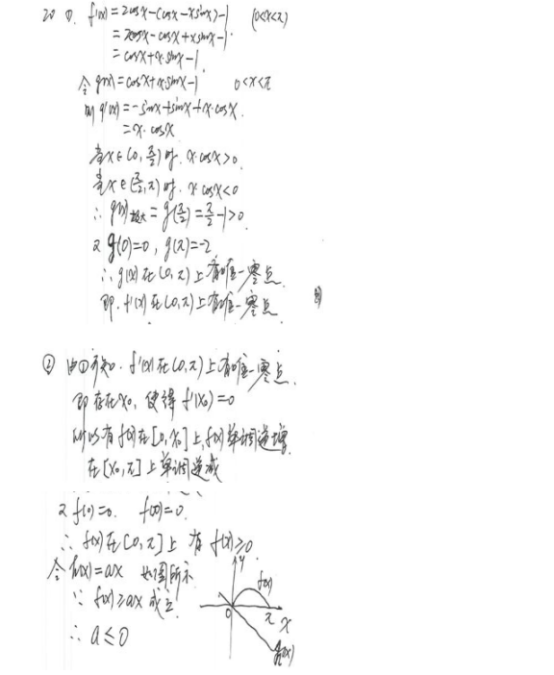 20 ①. f'(x)=2cosx-(cosx-x·sinx)-1 (0<x<π)
=2cosx-cosx+xsinx-1
=cosx+x·sinx-1
令g(x)=cosx+x·sinx-1 0<x<π
则 g'(x)=-sinx+sinx+x·cosx.
=x·cosx
当x∈(0,π/2)时. x·cosx>0.
当x∈(π/2,π)时. x·cosx<0
∴ g(x)最大=g(π/2)=π/2-1>0
又 g(0)=0, g(π)=-2
∴ g(x)在(0,π)上有唯一零点.
即. f'(x)在(0,π)上有唯一零点.
② 由①可知. f'(x)在(0,π)上有唯一零点.
即存在x₀, 使得f'(x₀)=0
所以有f(x)在[0,x₀]上,f(x)单调递增.
在[x₀,π]上单调递减
又f(0)=0. f(π)=0.
∴ f(x)在[0,π]上 有f(x)≥0
令h(x)=ax 如图所示
∵ f(x)≥ax成立
∴ a≤0
y
f(x)
0
π
x